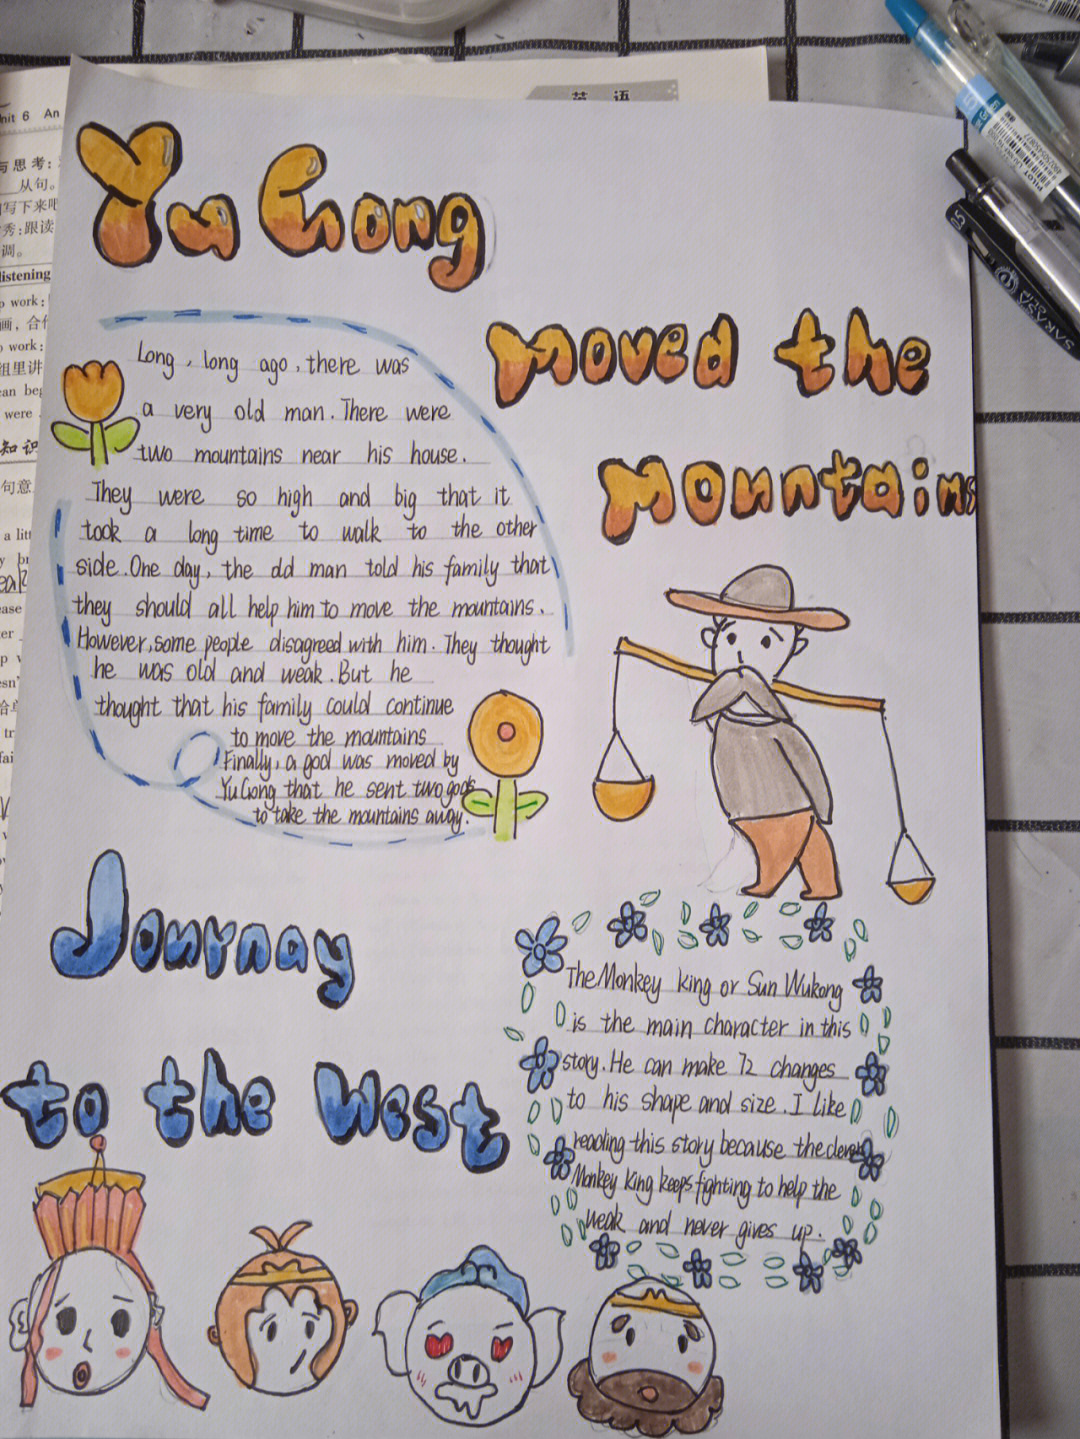 英 语
Unit 6 An
与思考:
从句。
写下来吧
秀:跟读
调。
listening
work:
画,合作
work:
组里讲
can beg
were
知识
句意
a litt
Yu Gong
Moved the
Mountains
Long, long ago, there was
a very old man. There were
two mountains near his house.
They were so high and big that it
took a long time to walk to the other
side. One day, the old man told his family that
they should all help him to move the mountains.
However, some people disagreed with him. They thought
he was old and weak. But he
thought that his family could continue
to move the mountains
Finally, a god was moved by
Yu Gong that he sent two gods
to take the mountains away.
Journay
to the West
The Monkey king or Sun Wukong
is the main character in this
story. He can make 72 changes
to his shape and size. I like
reading this story because the clever
Monkey king keeps fighting to help the
weak and never gives up.
PILOT
SARASA
0.5